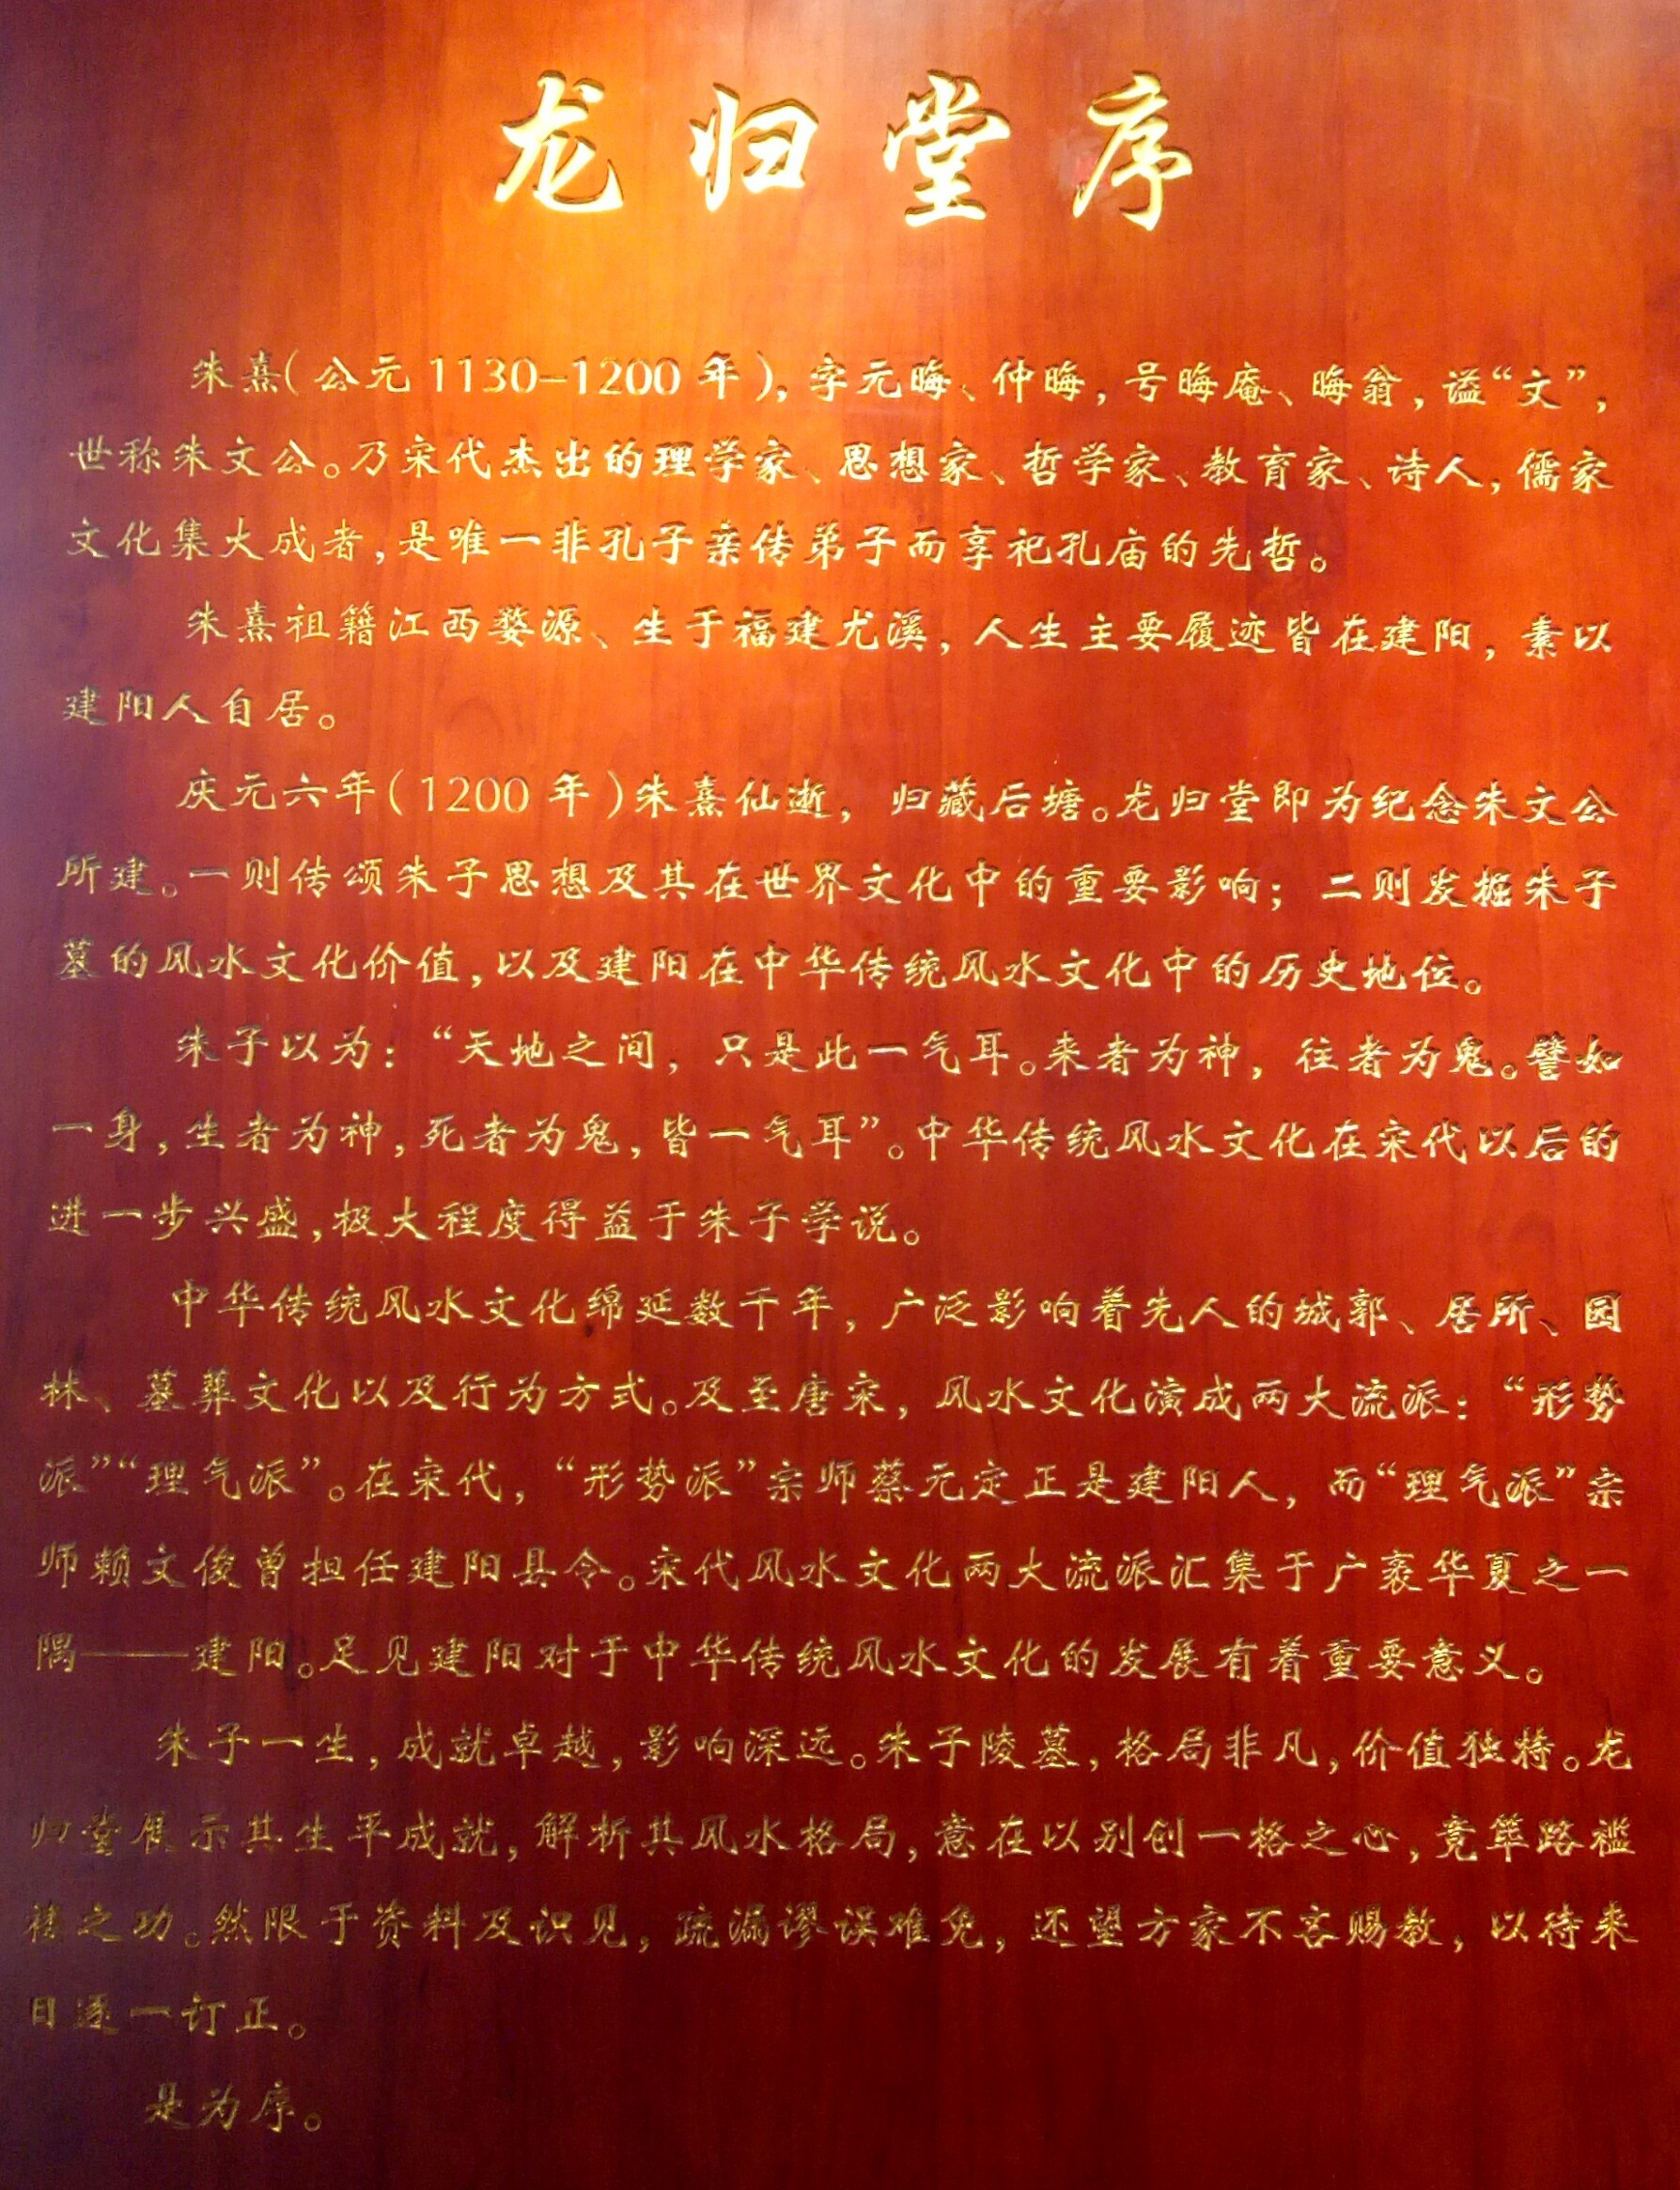 龙归堂序
朱熹(公元1130-1200年),字元晦、仲晦,号晦庵、晦翁,谥“文”,
世称朱文公。乃宋代杰出的理学家、思想家、哲学家、教育家、诗人,儒家
文化集大成者,是唯一非孔子亲传弟子而享祀孔庙的先哲。
朱熹祖籍江西婺源、生于福建尤溪,人生主要履迹皆在建阳,素以
建阳人自居。
庆元六年(1200年)朱熹仙逝,归藏后塘。龙归堂即为纪念朱文公
所建。一则传颂朱子思想及其在世界文化中的重要影响;二则发掘朱子
墓的风水文化价值,以及建阳在中华传统风水文化中的历史地位。
朱子以为:“天地之间,只是此一气耳。来者为神,往者为鬼。譬如
一身,生者为神,死者为鬼,皆一气耳”。中华传统风水文化在宋代以后的
进一步兴盛,极大程度得益于朱子学说。
中华传统风水文化绵延数千年,广泛影响着先人的城郭、居所、园
林、墓葬文化以及行为方式。及至唐宋,风水文化演成两大流派:“形势
派”“理气派”。在宋代,“形势派”宗师蔡元定正是建阳人,而“理气派”宗
师赖文俊曾担任建阳县令。宋代风水文化两大流派汇集于广袤华夏之一
隅——建阳。足见建阳对于中华传统风水文化的发展有着重要意义。
朱子一生,成就卓越,影响深远。朱子陵墓,格局非凡,价值独特。龙
归堂展示其生平成就,解析其风水格局,意在以别创一格之心,竟筚路褴
褛之功。然限于资料及识见,疏漏谬误难免,还望方家不吝赐教,以待来
日逐一订正。
是为序。